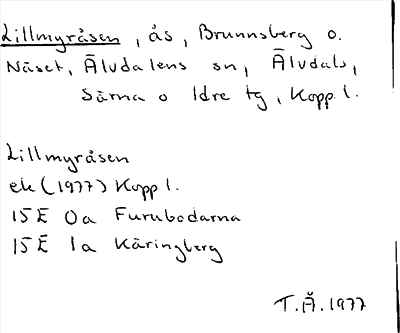 Lillmyråsen, ås, Brunnsberg o.
Näset, Älvdalens sn, Älvdals,
Särna o Idre tg, Kopp l.
Lillmyråsen
ek (1977) Kopp l.
15E 0a Furubodarna
15E 1a Käringberg
T.Å. 1977